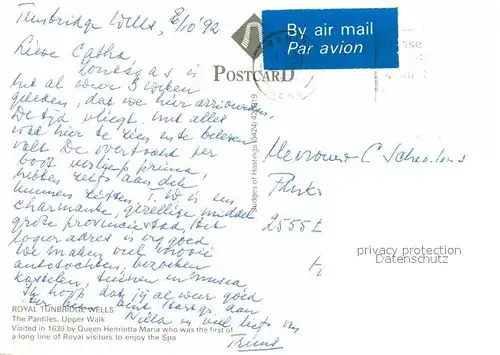 Tunbridge Wells, 8/10 '92
Lieve Catha
Zondag as is
het al weer 3 weken
geleden, dat we hier arriveerden
De tijd vliegt met alles
wat hier te zien en te beleven
valt De overtocht per
boot verliep prima,
hebben zelfs aan dek
kunnen zitten. T.W is een
charmante, gezellige middel
grote provinciestad, Het
logeer adres is erg goed
We maken veel mooie
autotochten, bezoeken
kastelen, tuinen en musea
Ik hoop dat jij al weer goed
bent Hartgr. dan
Nella en veel liefs van
Truus
By air mail
Par avion
POSTCARD
Judges of Hastings (0424) 420919
Mevrouw C
2555
privacy protection
Datenschutz
ROYAL TUNBRIDGE WELLS
The Pantiles, Upper Walk
Visited in 1630 by Queen Henrietta Maria who was the first of
a long line of Royal visitors to enjoy the Spa